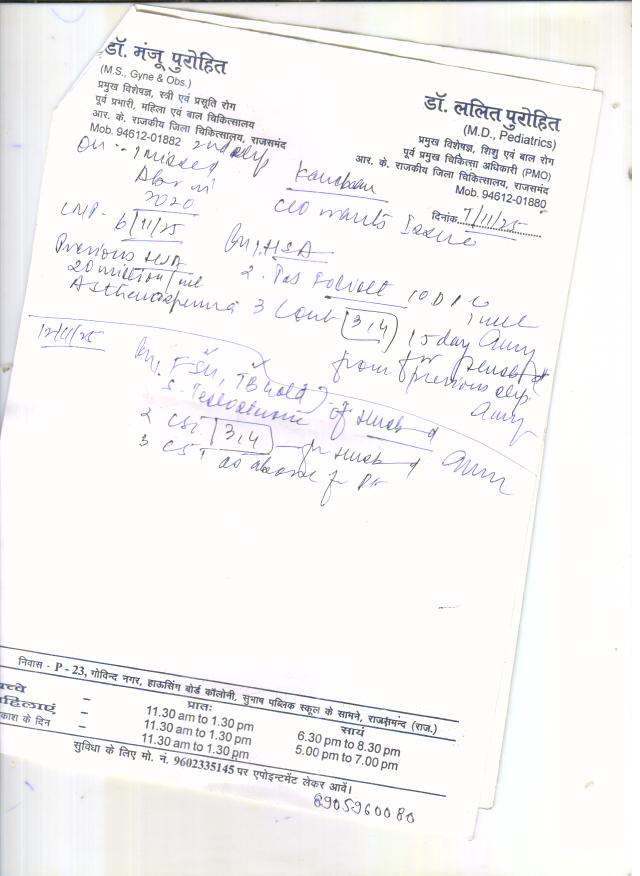 डॉ. मंजू पुरोहित
(M.S., Gyne & Obs.)
प्रमुख विशेषज्ञ, स्त्री एवं प्रसूति रोग
पूर्व प्रभारी, महिला एवं बाल चिकित्सालय
आर. के. राजकीय जिला चिकित्सालय, राजसमंद
Mob. 94612-01882
डॉ. ललित पुरोहित
(M.D., Pediatrics)
प्रमुख विशेषज्ञ, शिशु एवं बाल रोग
पूर्व प्रमुख चिकित्सा अधिकारी (PMO)
आर. के. राजकीय जिला चिकित्सालय, राजसमंद
Mob. 94612-01880
दिनांक 7/11/25
1 missed
2020
C/O wants Issue
LMP - 6/11/25
HSA
Previous HSA
20 million/ml
Asthenospermia
2.
3 Cont (3,4)
15 day
from previous slip
12/11/25
FSH, TB Gold
S. Testosterone of Husband
2 CST 3,4 for Husband
3 CST as above for Pt
निवास - P - 23, गोविन्द नगर, हाऊसिंग बोर्ड कॉलोनी, सुभाष पब्लिक स्कूल के सामने, राजसमन्द (राज.)
प्रातः सायं
च्चे – 11.30 am to 1.30 pm 6.30 pm to 8.30 pm
हिलाएं – 11.30 am to 1.30 pm 5.00 pm to 7.00 pm
काश के दिन – 11.30 am to 1.30 pm
सुविधा के लिए मो. नं. 9602335145 पर एपोइन्टमेंट लेकर आवें।
8905960080